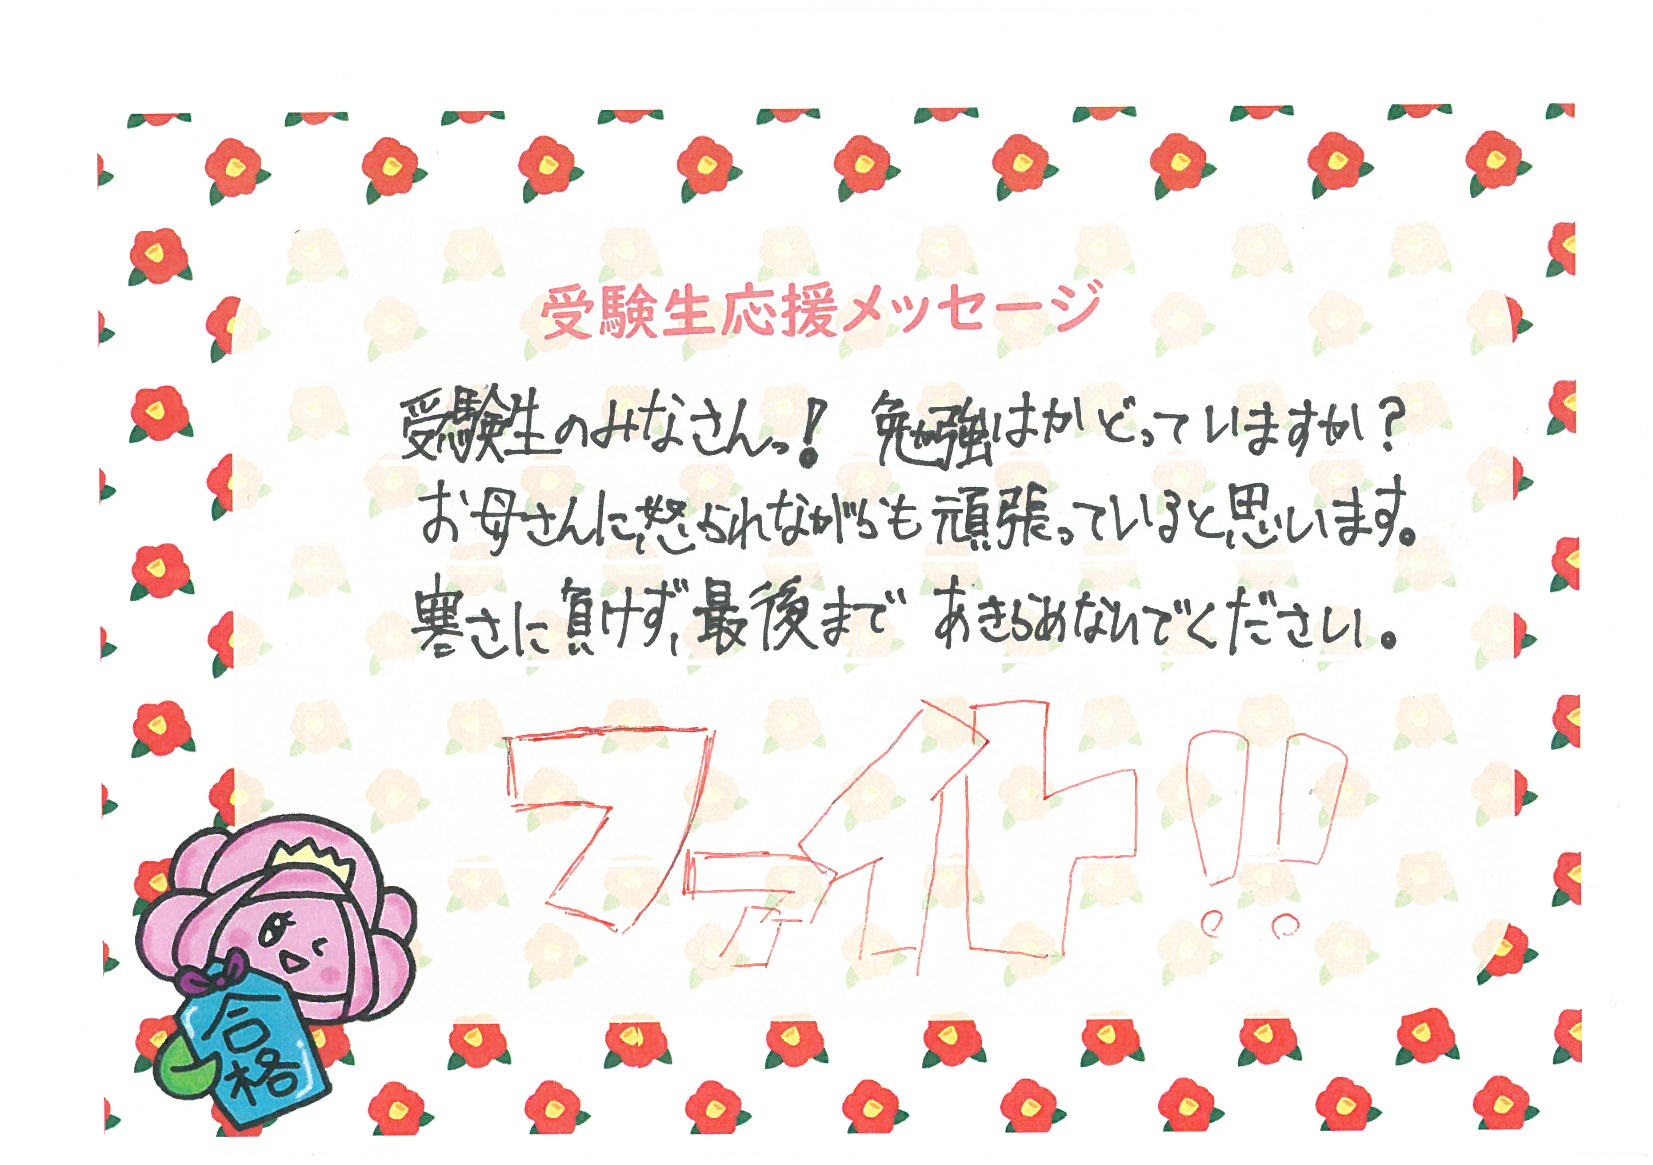 受験生応援メッセージ
受験生のみなさんっ! 勉強はかどっていますか?
お母さんに怒られながらも頑張っていると思います。
寒さに負けず、最後まで あきらめないでください。
ファイト!!
合格